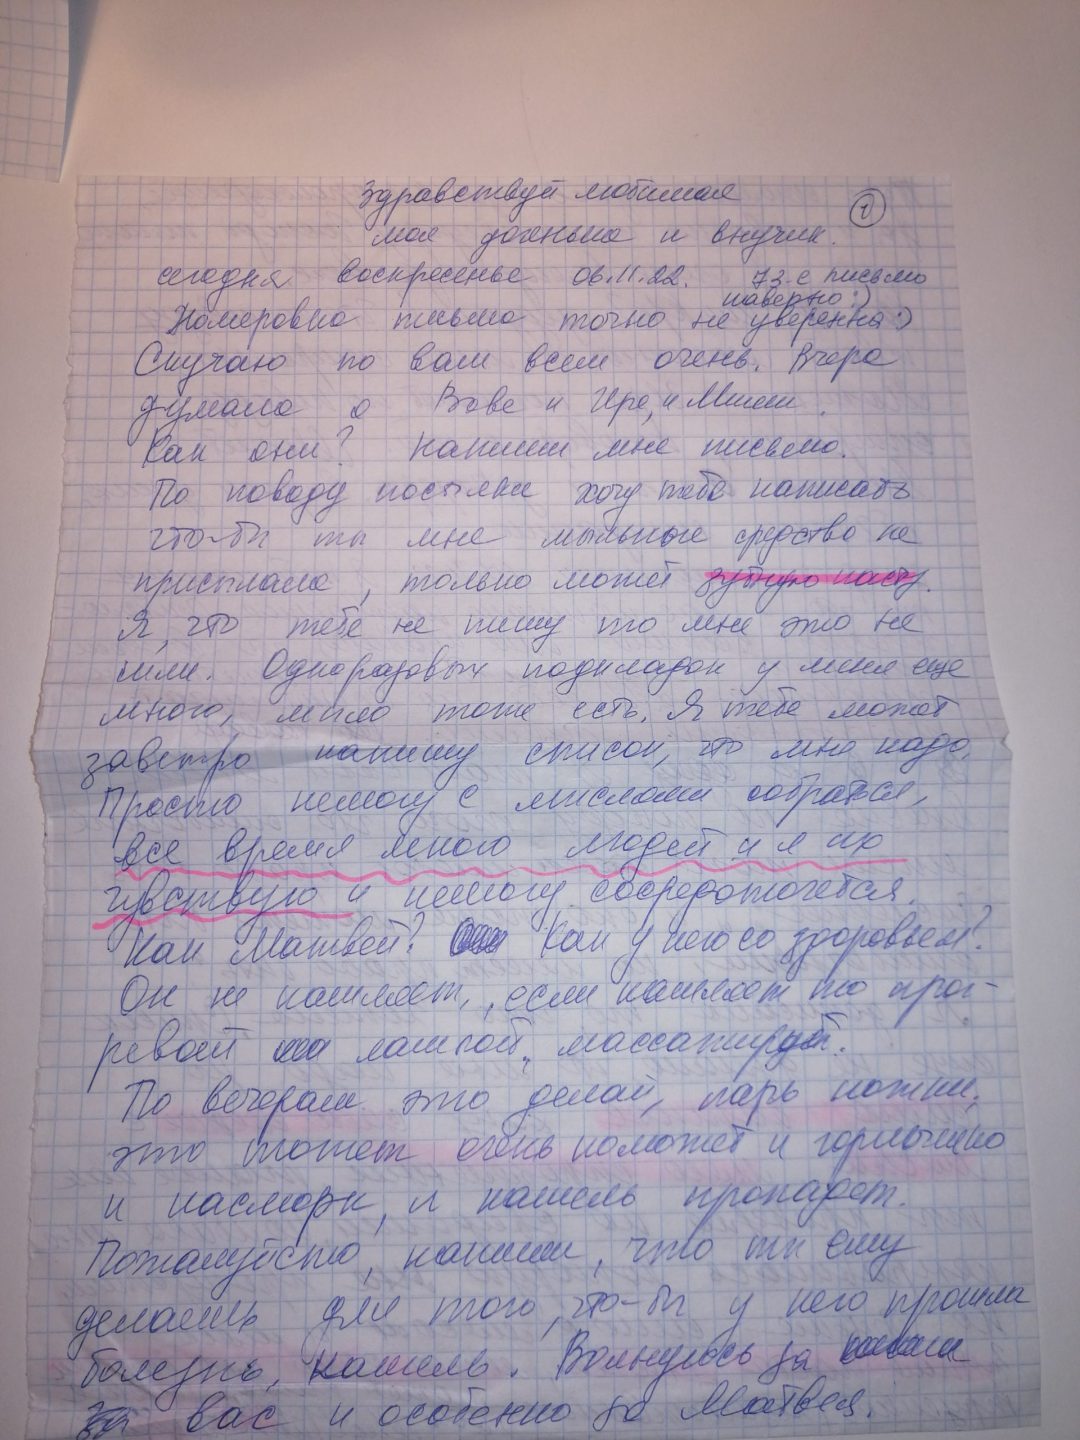 Здравствуй любимая
1
моя доченька и внучик.
сегодня воскресенье 06.11.22. 73-е письмо
наверно :)
Номеровка письма точно не уверенна :)
Скучаю по вам всем очень. Вчера
думала о Вове и Ире, и Миши.
Как они? Напиши мне письмо.
По поводу посылки хочу тебе написать
что-бы ты мне мыльные средство не
присылала, только может зубную пасту.
Я, что тебе не пишу то мне это не
шли. Одноразовых подкладок у меня еще
много, мыло тоже есть. Я тебе может
завтро напишу список, что мне надо.
Просто немогу с мыслями собратся,
все время много людей и я их
чувствую и немогу сосредоточется.
Как Матвей? Как у него со здоровьем?
Он не кашляет, если кашляет то прог-
ревай лампой, массажируй.
По вечерам это делай, парь ножки,
это может очень поможет и горлышко
и насморк, и кашель пропадет.
Пожалуйсто, напиши, что ты ему
делаешь для того, что-бы у него прошла
болезнь, кашель. Волнуюсь за
за вас и особенно за Матвея.